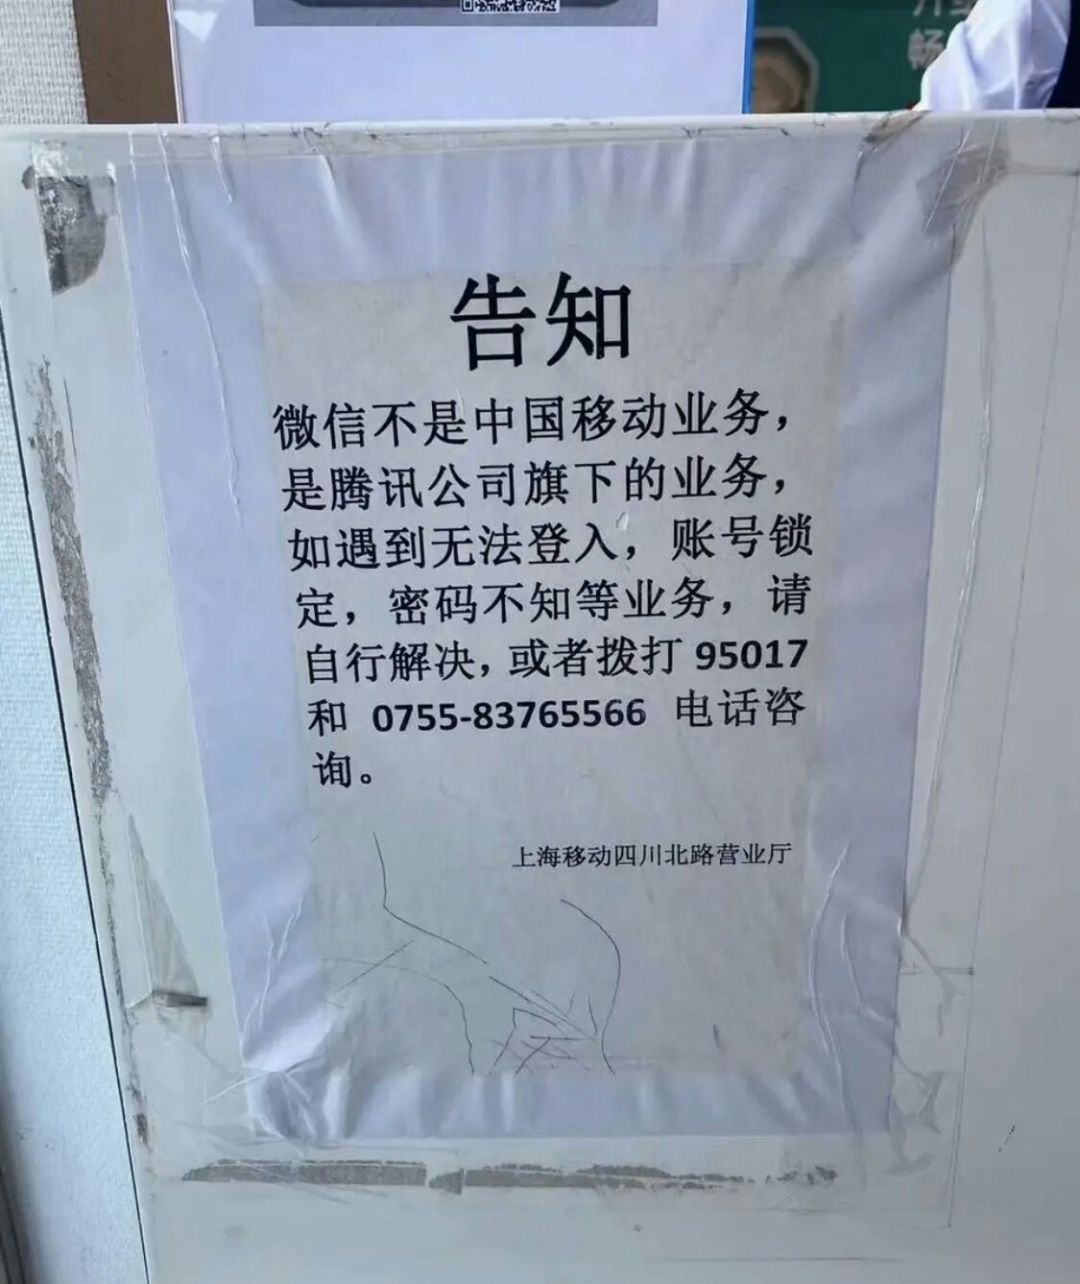 畅
告知
微信不是中国移动业务，
是腾讯公司旗下的业务，
如遇到无法登入，账号锁
定，密码不知等业务，请
自行解决，或者拨打 95017
和 0755-83765566 电话咨
询。
上海移动四川北路营业厅